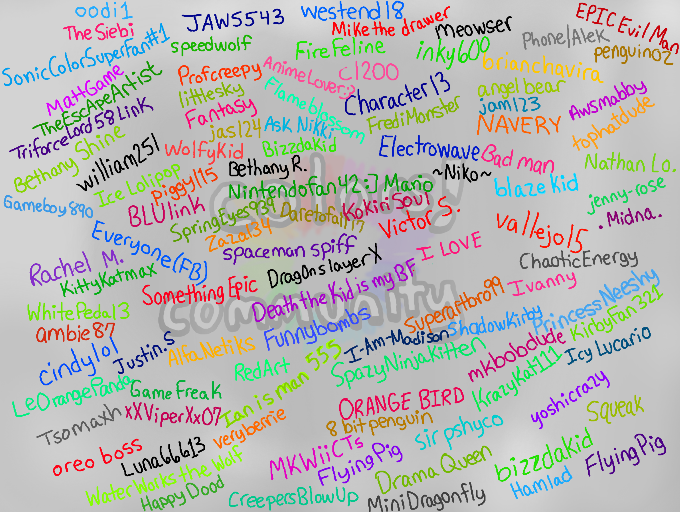 oodi1
JAWS5543
westend18
Mike the drawer
Meowser
Phone/Alek
EPIC Evil Man
The Siebi
SonicColorSuperfan#1
speedwolf
FireFeline
inky600
penguin02
MattGame
Profcreepy
AnimeLover:3
c1200
brianchavira
TheEscApeArtist
littlesky
Flameblossom
Character13
angel bear
Awsmabby
TriforceLord58LinK
Fantasy
FrediMonster
jam123
tophatdude
Bethany Shine
jas124
Ask Nikki
NAVERY
william251
WolfyKid
Bizzdakid
Electrowave
Bad man
Nathan Lo.
Ice Lolipop
Piggy115
Bethany R.
~Niko~
blaze kid
jenny-rose
Gameboy890
BLUlink
Nintendofan42:J
Mario
KokiriSoul
.Midna.
SpringEyes934
Daretofail17
Victor S.
vallejo15
Everyone(FB)
Zaza134
spaceman spiff
I LOVE
ChaoticEnergy
Rachel M.
KittyKatmax
SomethingEpic
DragonslayerX
Death the Kid is my BF
Ivanny
community
WhitePedal3
Superafbro99
PrincessNeeshy
ambie87
Funnybombs
ShadowKirby
KirbyFan321
cindylol
Justin.S
AlfaNetiks
I-Am-Madison
mkbobdude
Icy Lucario
LeOrangePanda
GameFreak
RedArt
Ian is man 555
SpazyNinjaKitten
KrazyKat111
yoshicrazy
Tsomaxh
xXViperXx07
ORANGE BIRD
Squeak
oreo boss
Luna66613
veryberrie
8 bit penguin
sir pshyco
WaterWorks the Wolf
MKWiiCTs
FlyingPig
Drama Queen
bizzdakid
FlyingPig
Happy Dood
CreepersBlowUp
MiniDragonfly
Hamlad